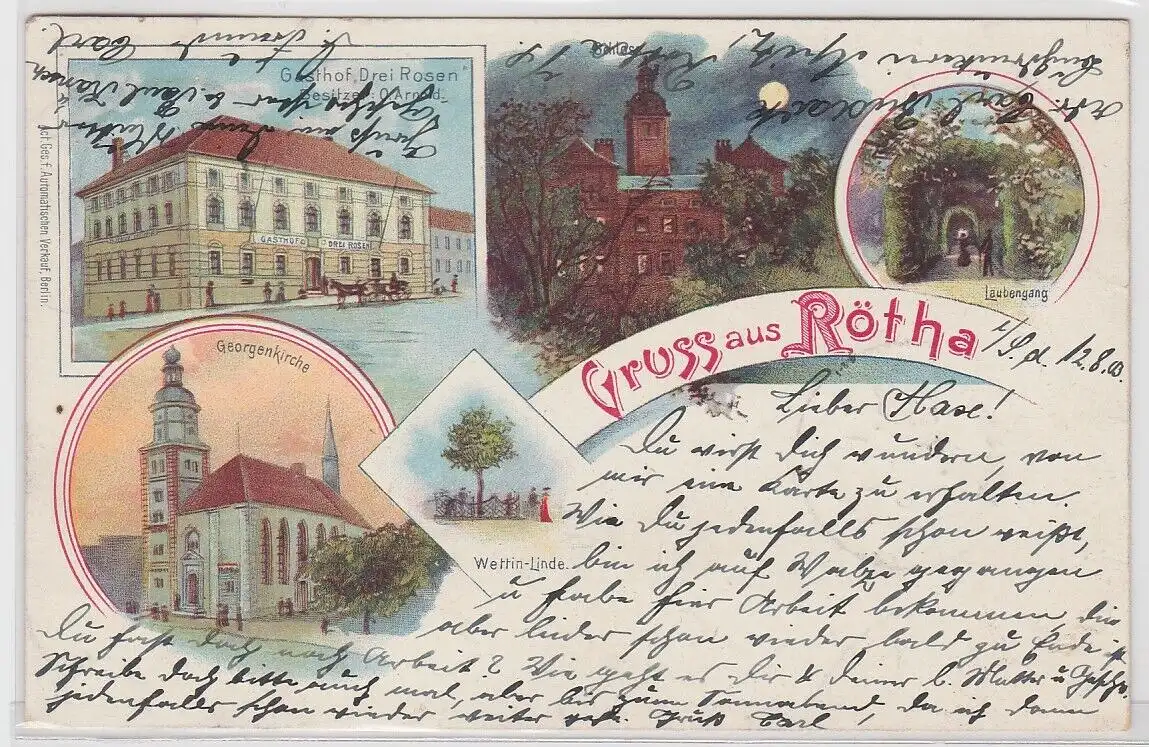 Gasthof „Drei Rosen"
Besitzer: O. Arnold.
GASTHOF DREI ROSEN
Act. Ges. f. Automatischen Verkauf, Berlin.
Schloss
Laubengang
Georgenkirche
Wettin-Linde.
Gruss aus Rötha
d. 12.8.03.
Lieber Hase!
Du wirst Dich wundern, von
mir eine Karte zu erhalten.
Wie Du jedenfalls schon weißt,
bin ich auf Walze gegangen
u habe hier Arbeit bekommen die
aber leider schon wieder bald zu Ende ist
Du hast doch noch Arbeit? Wie geht es Dir & Deiner l. Mutter u Geschw.
Schreibe doch bitte auch mal, aber bis zum Sonnabend, da ich dann
jedenfalls schon wieder weiter Gruß Carl
Adr. Carl
Buchdruckerei Apitz, Rötha i/S.
Freund Carl.
Gruß an Deine
Mutter Paul